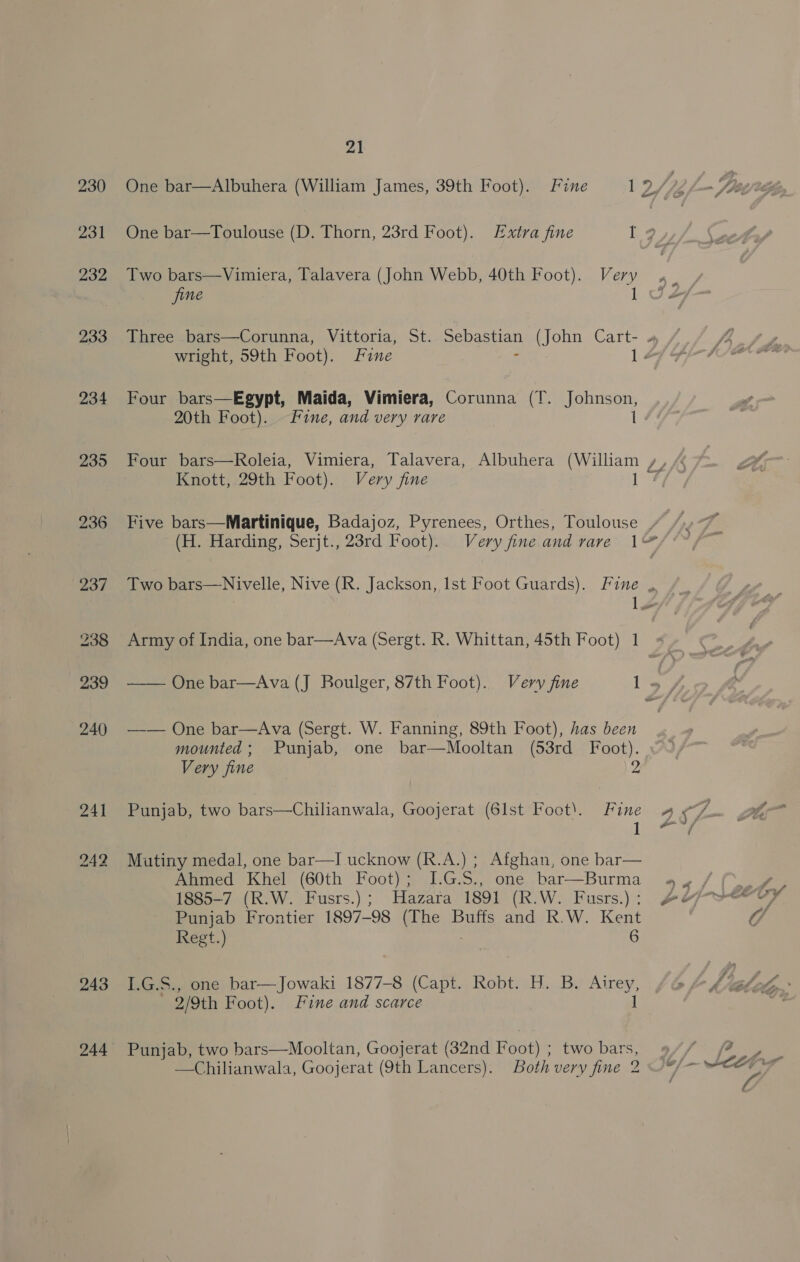 21
230 One bar—Albuhera (William James, 39th Foot). Fine 1
231 One bar—Toulouse (D. Thorn, 23rd Foot). Extra fine 1
232 Two bars—Vimiera, Talavera (John Webb, 40th Foot). Very
fine 1
233 Three bars—Corunna, Vittoria, St. Sebastian (John Cart-
wright, 59th Foot). Fine 1
234 Four bars—Egypt, Maida, Vimiera, Corunna (T. Johnson,
20th Foot). Fine, and very rare 1
235 Four bars—Roleia, Vimiera, Talavera, Albuhera (William
Knott, 29th Foot). Very fine 1
236 Five bars—Martinique, Badajoz, Pyrenees, Orthes, Toulouse
(H. Harding, Serjt., 23rd Foot). Very fine and rare 1
237 Two bars—Nivelle, Nive (R. Jackson, 1st Foot Guards). Fine
1
238 Army of India, one bar—Ava (Sergt. R. Whittan, 45th Foot) 1
239 —— One bar—Ava (J Boulger, 87th Foot). Very fine 1
240 —— One bar—Ava (Sergt. W. Fanning, 89th Foot), has been
mounted ; Punjab, one bar—Mooltan (53rd Foot).
Very fine 2
241 Punjab, two bars—Chilianwala, Goojerat (61st Foot). Fine
1
242 Mutiny medal, one bar—Lucknow (R.A.) ; Afghan, one bar—
Ahmed Khel (60th Foot) ; I.G.S., one bar—Burma
1885-7 (R.W. Fusrs.) ; Hazara 1891 (R.W. Fusrs.) :
Punjab Frontier 1897-98 (The Buffs and R.W. Kent
Regt.) 6
243 I.G.S., one bar—Jowaki 1877-8 (Capt. Robt. H. B. Airey,
2/9th Foot). Fine and scarce 1
244 Punjab, two bars—Mooltan, Goojerat (32nd Foot) ; two bars,
—Chilianwala, Goojerat (9th Lancers). Both very fine 2